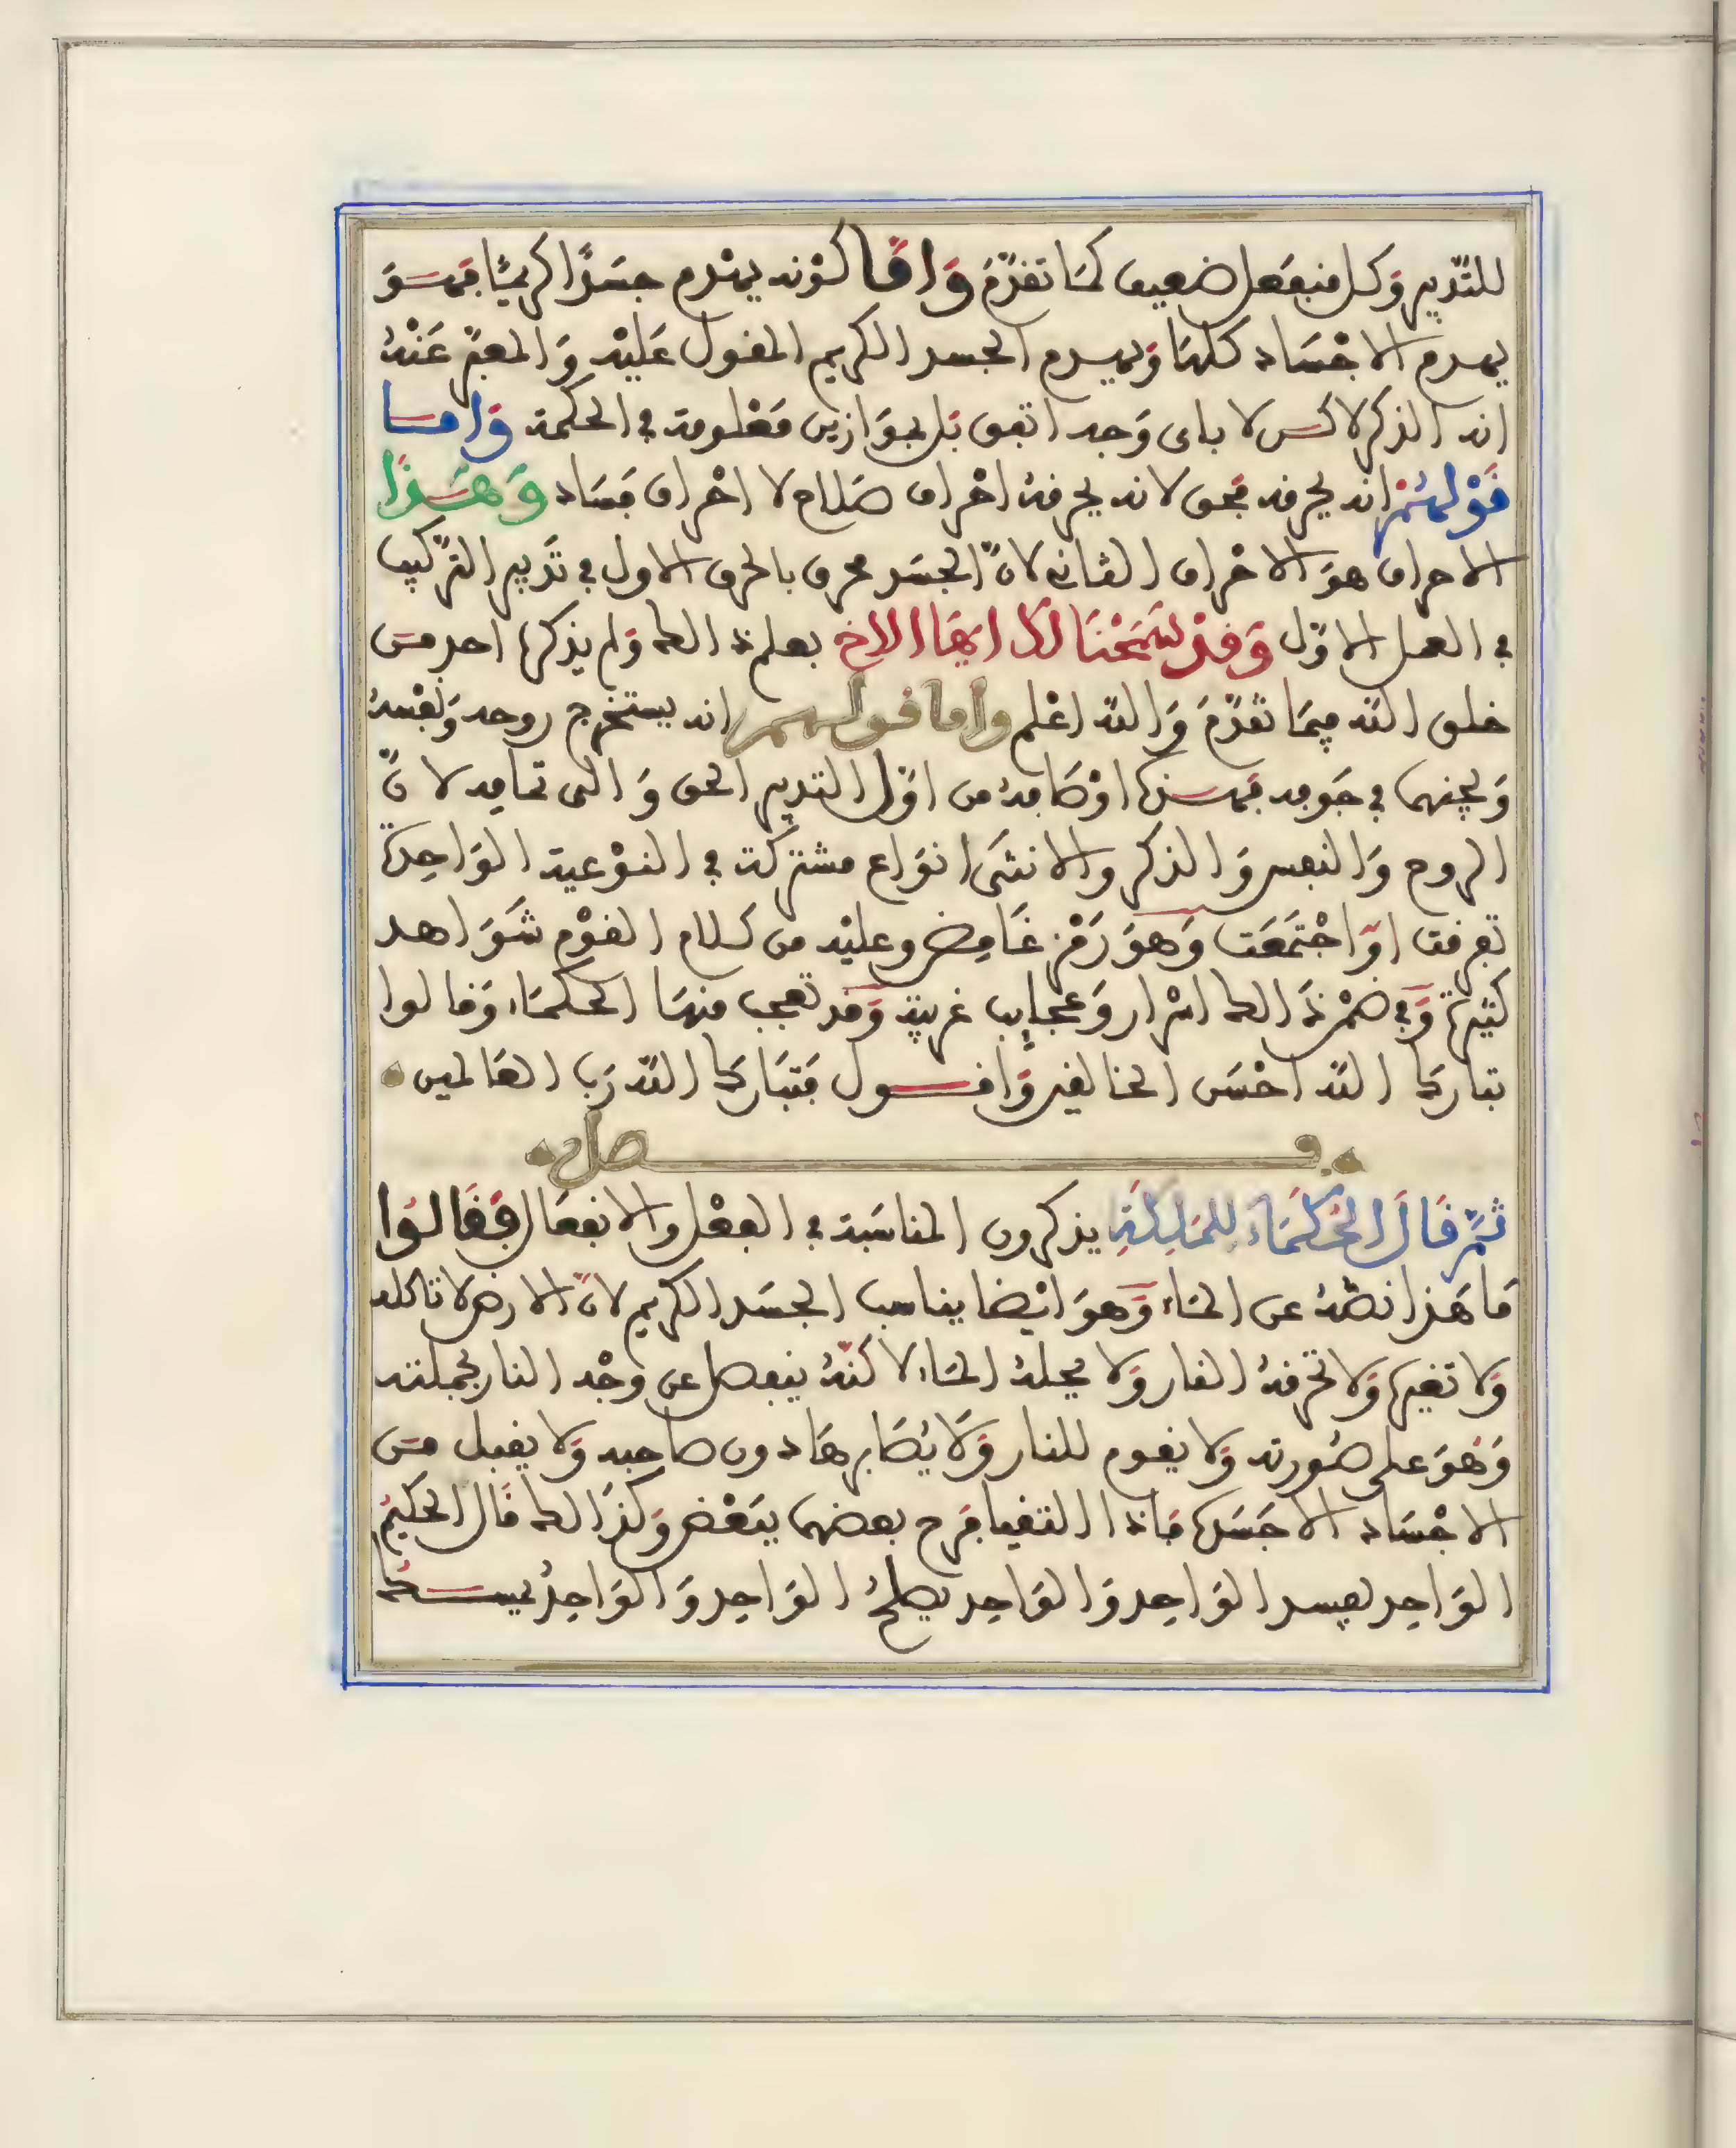 للتدبير وكل منفعل ضعيف كما تقدم واما كونه يهدم جسدا كريما فهو
يهدم الاجساد كلها ويهدم الجسد الكريم المقول عليه والمعبر عنه
انه الذكر لاكن لا باى وجه اتفق بل بموازين معلومة في الحكمة واما
قولهم انه يحرقه فحق لانه يحرقه احراق صلاح لا احراق فساد وهذا
الاحراق هو الاحراق الثاني لان الجسد محرق بالحرق الاول في تدبير التركيب
في العمل الاول وقد سمحنا لك ايها الاخ بعلم ذالك ولم يذكره احد من
خلق الله فيما تقدم والله اعلم واما قولهم انه يستخرج روحه ونفسه
ويجنهما في جوفه فهذه اوصافه من اول التدبير الحق والى تمامه لان
الروح والنفس والذكر والانثى انواع مشتركة في النوعية الواحدة
تفرقت او اجتمعت وهو رمز غامض وعليه من كلام القوم شواهد
كثيرة وفي ضمن ذالك اسرار وعجايب غريبة وقد تعجب منها الحكماء وقالوا
تبارك الله احسن الخالقين واقول فتبارك الله رب العالمين
فصل
ثم قال الحكماء للملكة يذكرون المناسبة في الفعل والانفعال فقالوا
ما هذا نصه عن الماء وهو ايضا يناسب الجسد الكريم لان الارض لا تاكله
ولا تغيره ولا تحرقه النار ولا يحله الماء لاكنه ينفصل عن وجه النار بجملته
وهو على صورته ولا يقوم للنار ولا يصابرها دون صاحبه ولا يقبل من
الاجساد الا جسده فاذا التقيا فرح بعضهما ببعض وكذالك قال الحكيم
الواحد يفسد الواحد والواحد يصلح الواحد والواحد يمسك